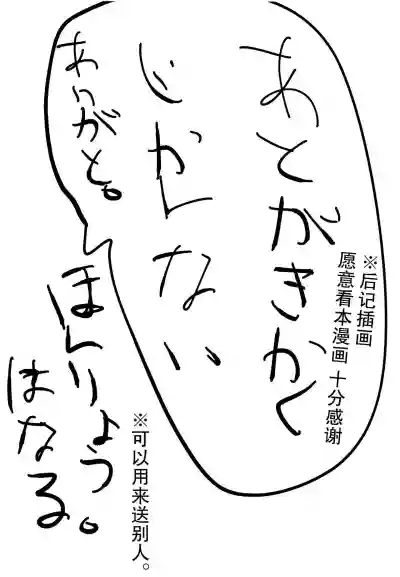 あとがきかく
じかんない
ありがと。
※后记插画
愿意看本漫画 十分感谢
ほんりょう。
はなる
※可以用来送别人。